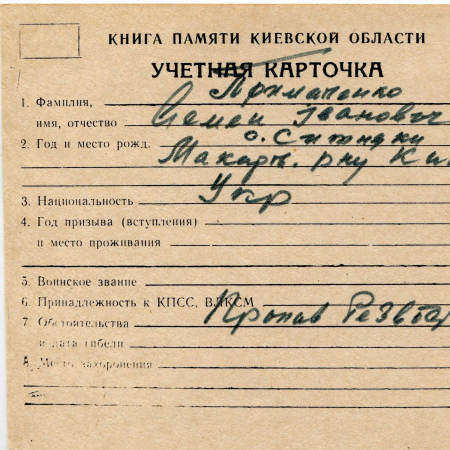 КНИГА ПАМЯТИ КИЕВСКОЙ ОБЛАСТИ
УЧЕТНАЯ КАРТОЧКА
1. Фамилия, Примаченко
имя, отчество Семен Іванович
2. Год и место рожд. с. Ситняки
Макарів. р-ну Ки
3. Национальность Укр
4. Год призыва (вступления)
и место проживания
5. Воинское звание
6. Принадлежность к КПСС, ВЛКСМ
7. Обстоятельства Пропав безвіс
и дата гибели
8. Место захоронения